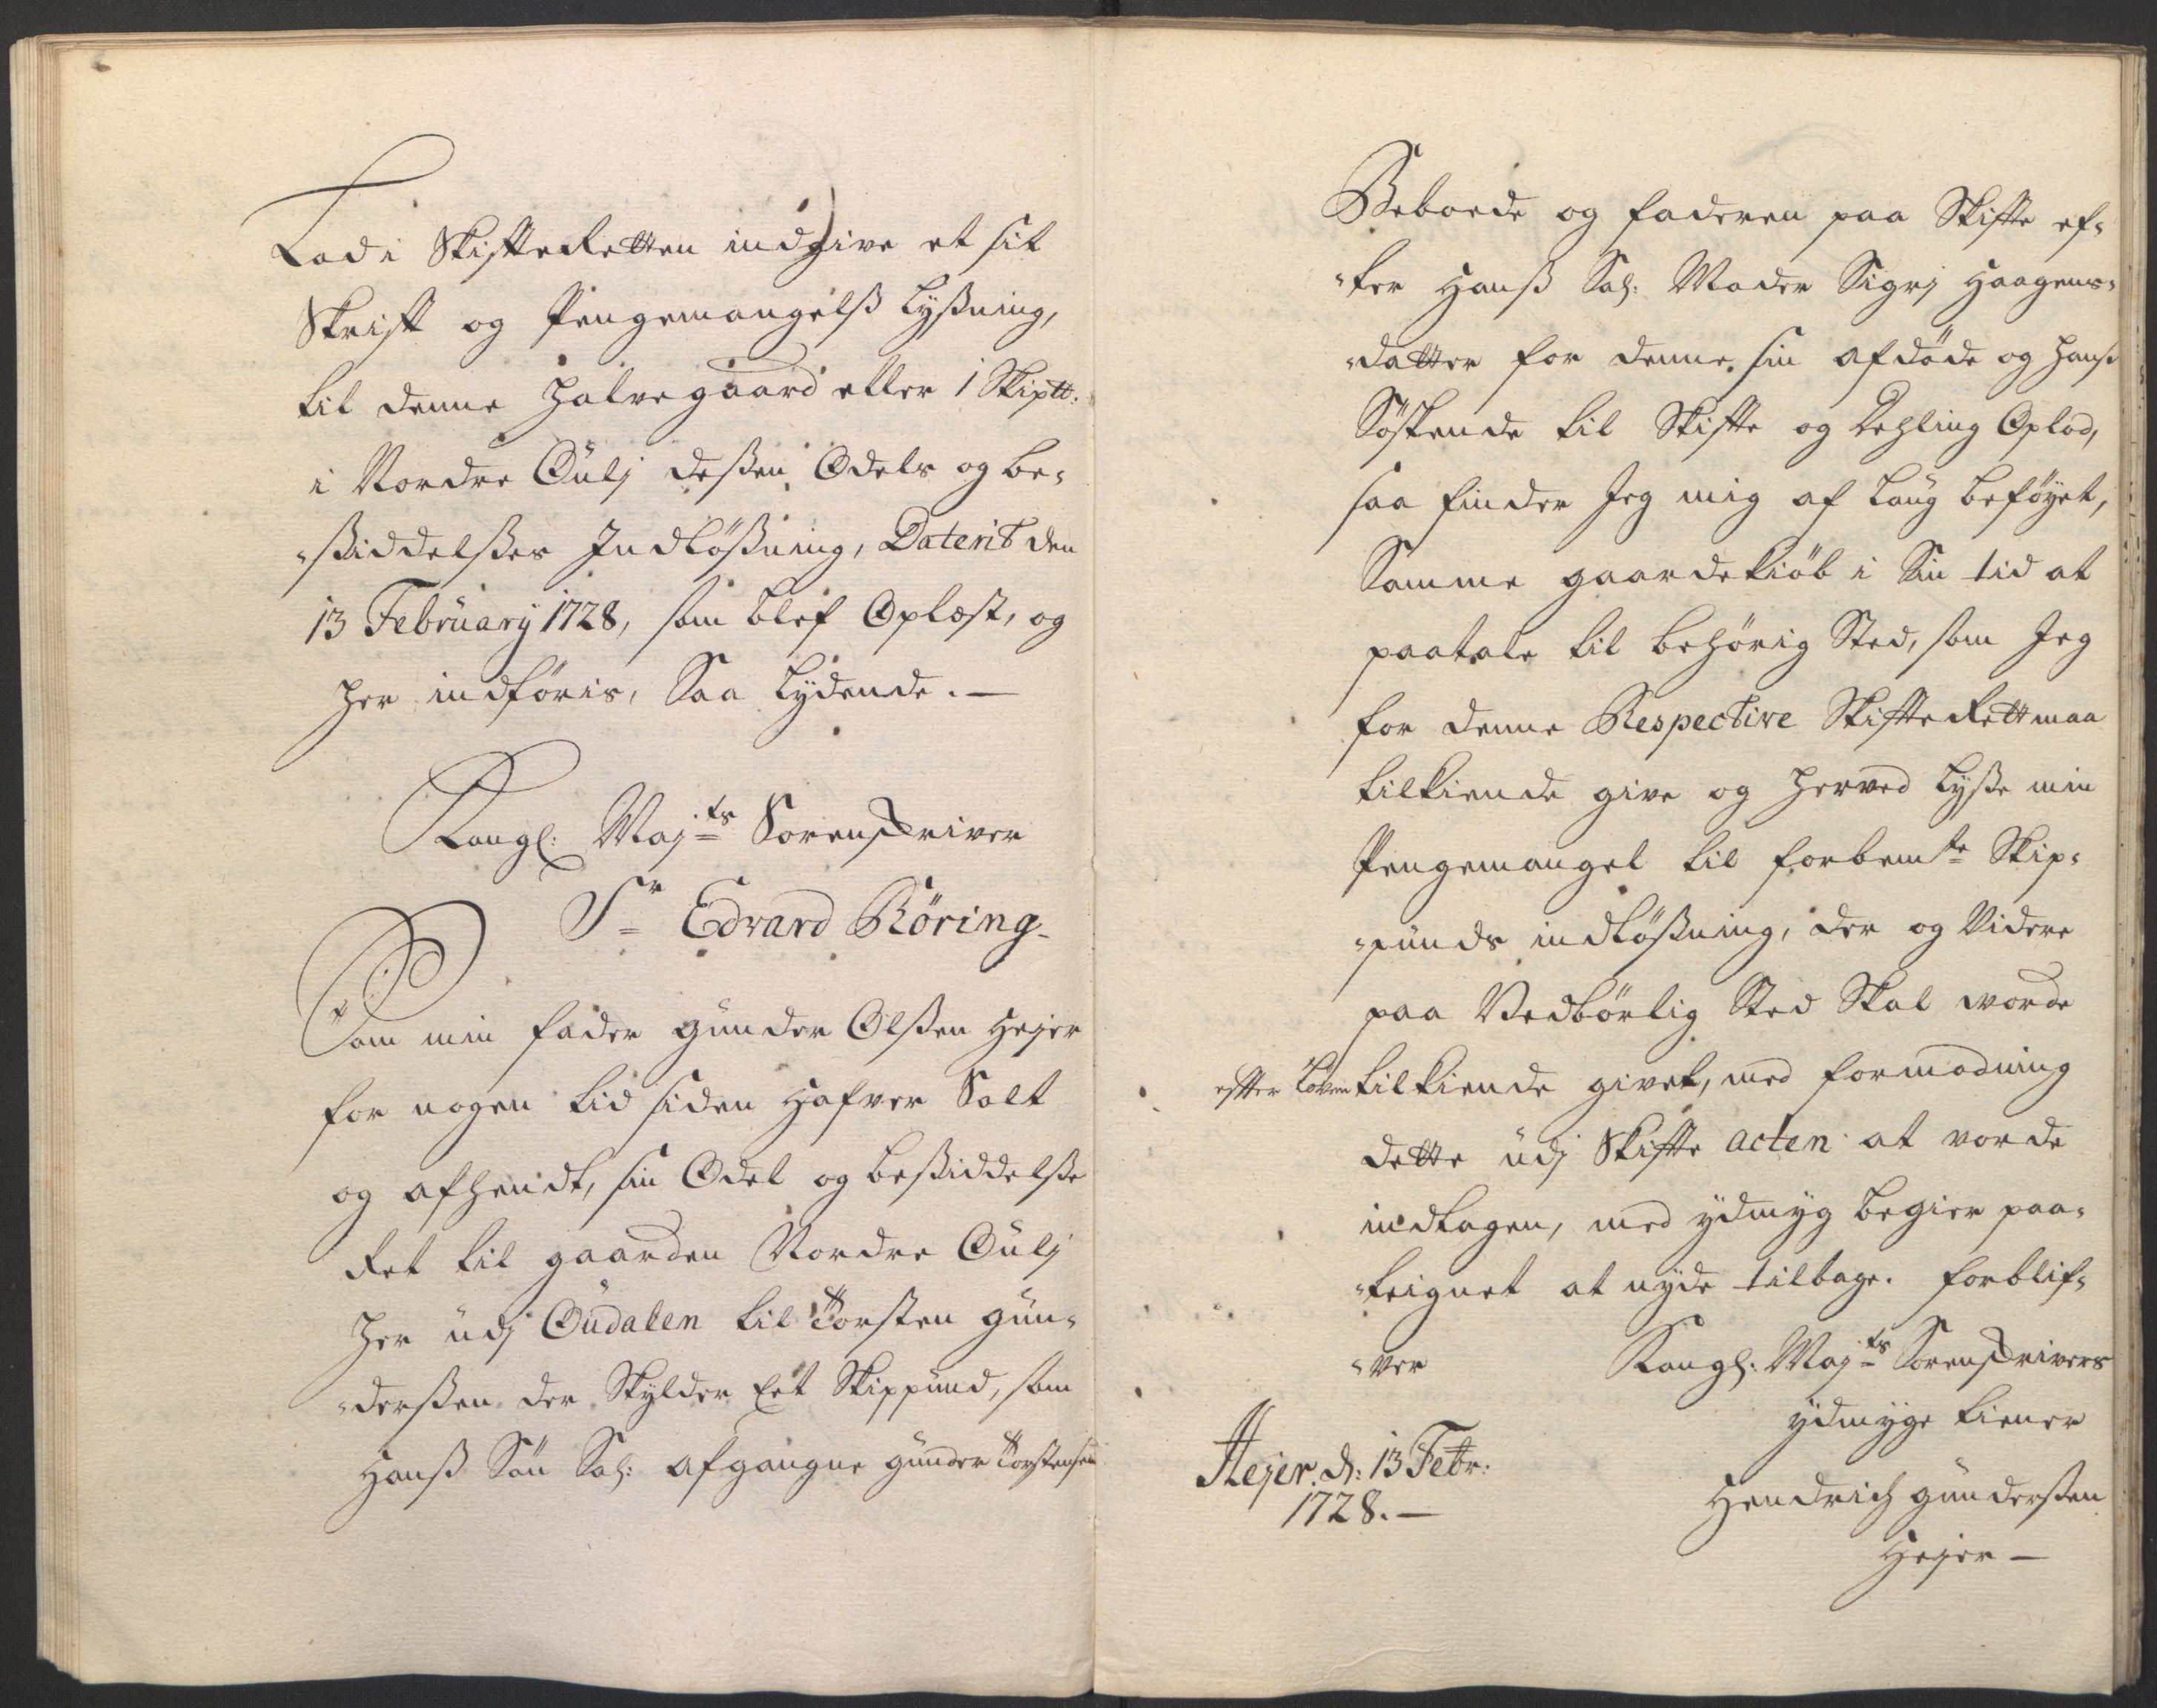 Lod i Skifte Retten indgive et sit
Skrift og Pengemangelß lyßning,
til denne halvegaard eller 1 Skiptt:
i Nordre Öulj deßen Odels og be-
-ßiddelßes Indlößning, Daterit den
13 February 1728, som blef Oplæst, og
her indföris, Saa lydende. —
Kongl: Maj:ts Sorenskriver
Sr Edvard Röring.
Som min fader Gunder Olßen Hejer
for nogen tid siden Hafver Solt
og afhendt, sin Odel og beßiddelße
Ret til gaarden Nordre Öulj
her udj Öudalen til Torsten Gun-
-derßen der Skylder Eet Skippund, som
Hanß Sön Sal: afgangne Gunder Torstensen
Beboede og faderen paa Skifte ef-
-ter Hanß Sal: Moder Sigrj Haagens-
-datter for denne sin afdöde og hanß
Söskende til Skifte og Dehling Oplod,
saa finder Jeg mig af laug beföyet,
Samme gaardekiöb i Sin tid at
paatale til behörig Sted, som Jeg
for denne Respective Skifte Rett maa
tilkiende give og herved lyße min
Pengemangel til forbemte Skip-
-punds indlößning, der og Videre
paa Vedbörlig Sted Skal worde
efter loven tilkiende givet, med formodning
dette udj Skifte acten at vorde
indtagen, med ydmyg begier paa-
-teignet at nyde tilbage. forblif-
-ver Kongl: Maj:ts Sorenskrivers
ydmyge tiener
Hejer. d: 13 Febr:
1728. —
Hendrich Gunderßen
Hejer —